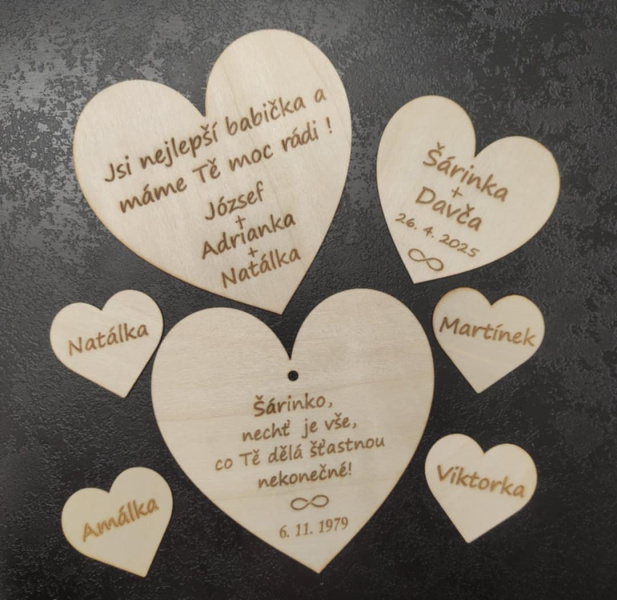 Jsi nejlepší babička a
máme Tě moc rádi !
József
+
Adrianka
+
Natálka
Šárinka
+
Davča
26. 4. 2025
∞
Natálka
Martínek
Šárinko,
nechť je vše,
co Tě dělá šťastnou
nekonečné!
∞
6. 11. 1979
Viktorka
Amálka